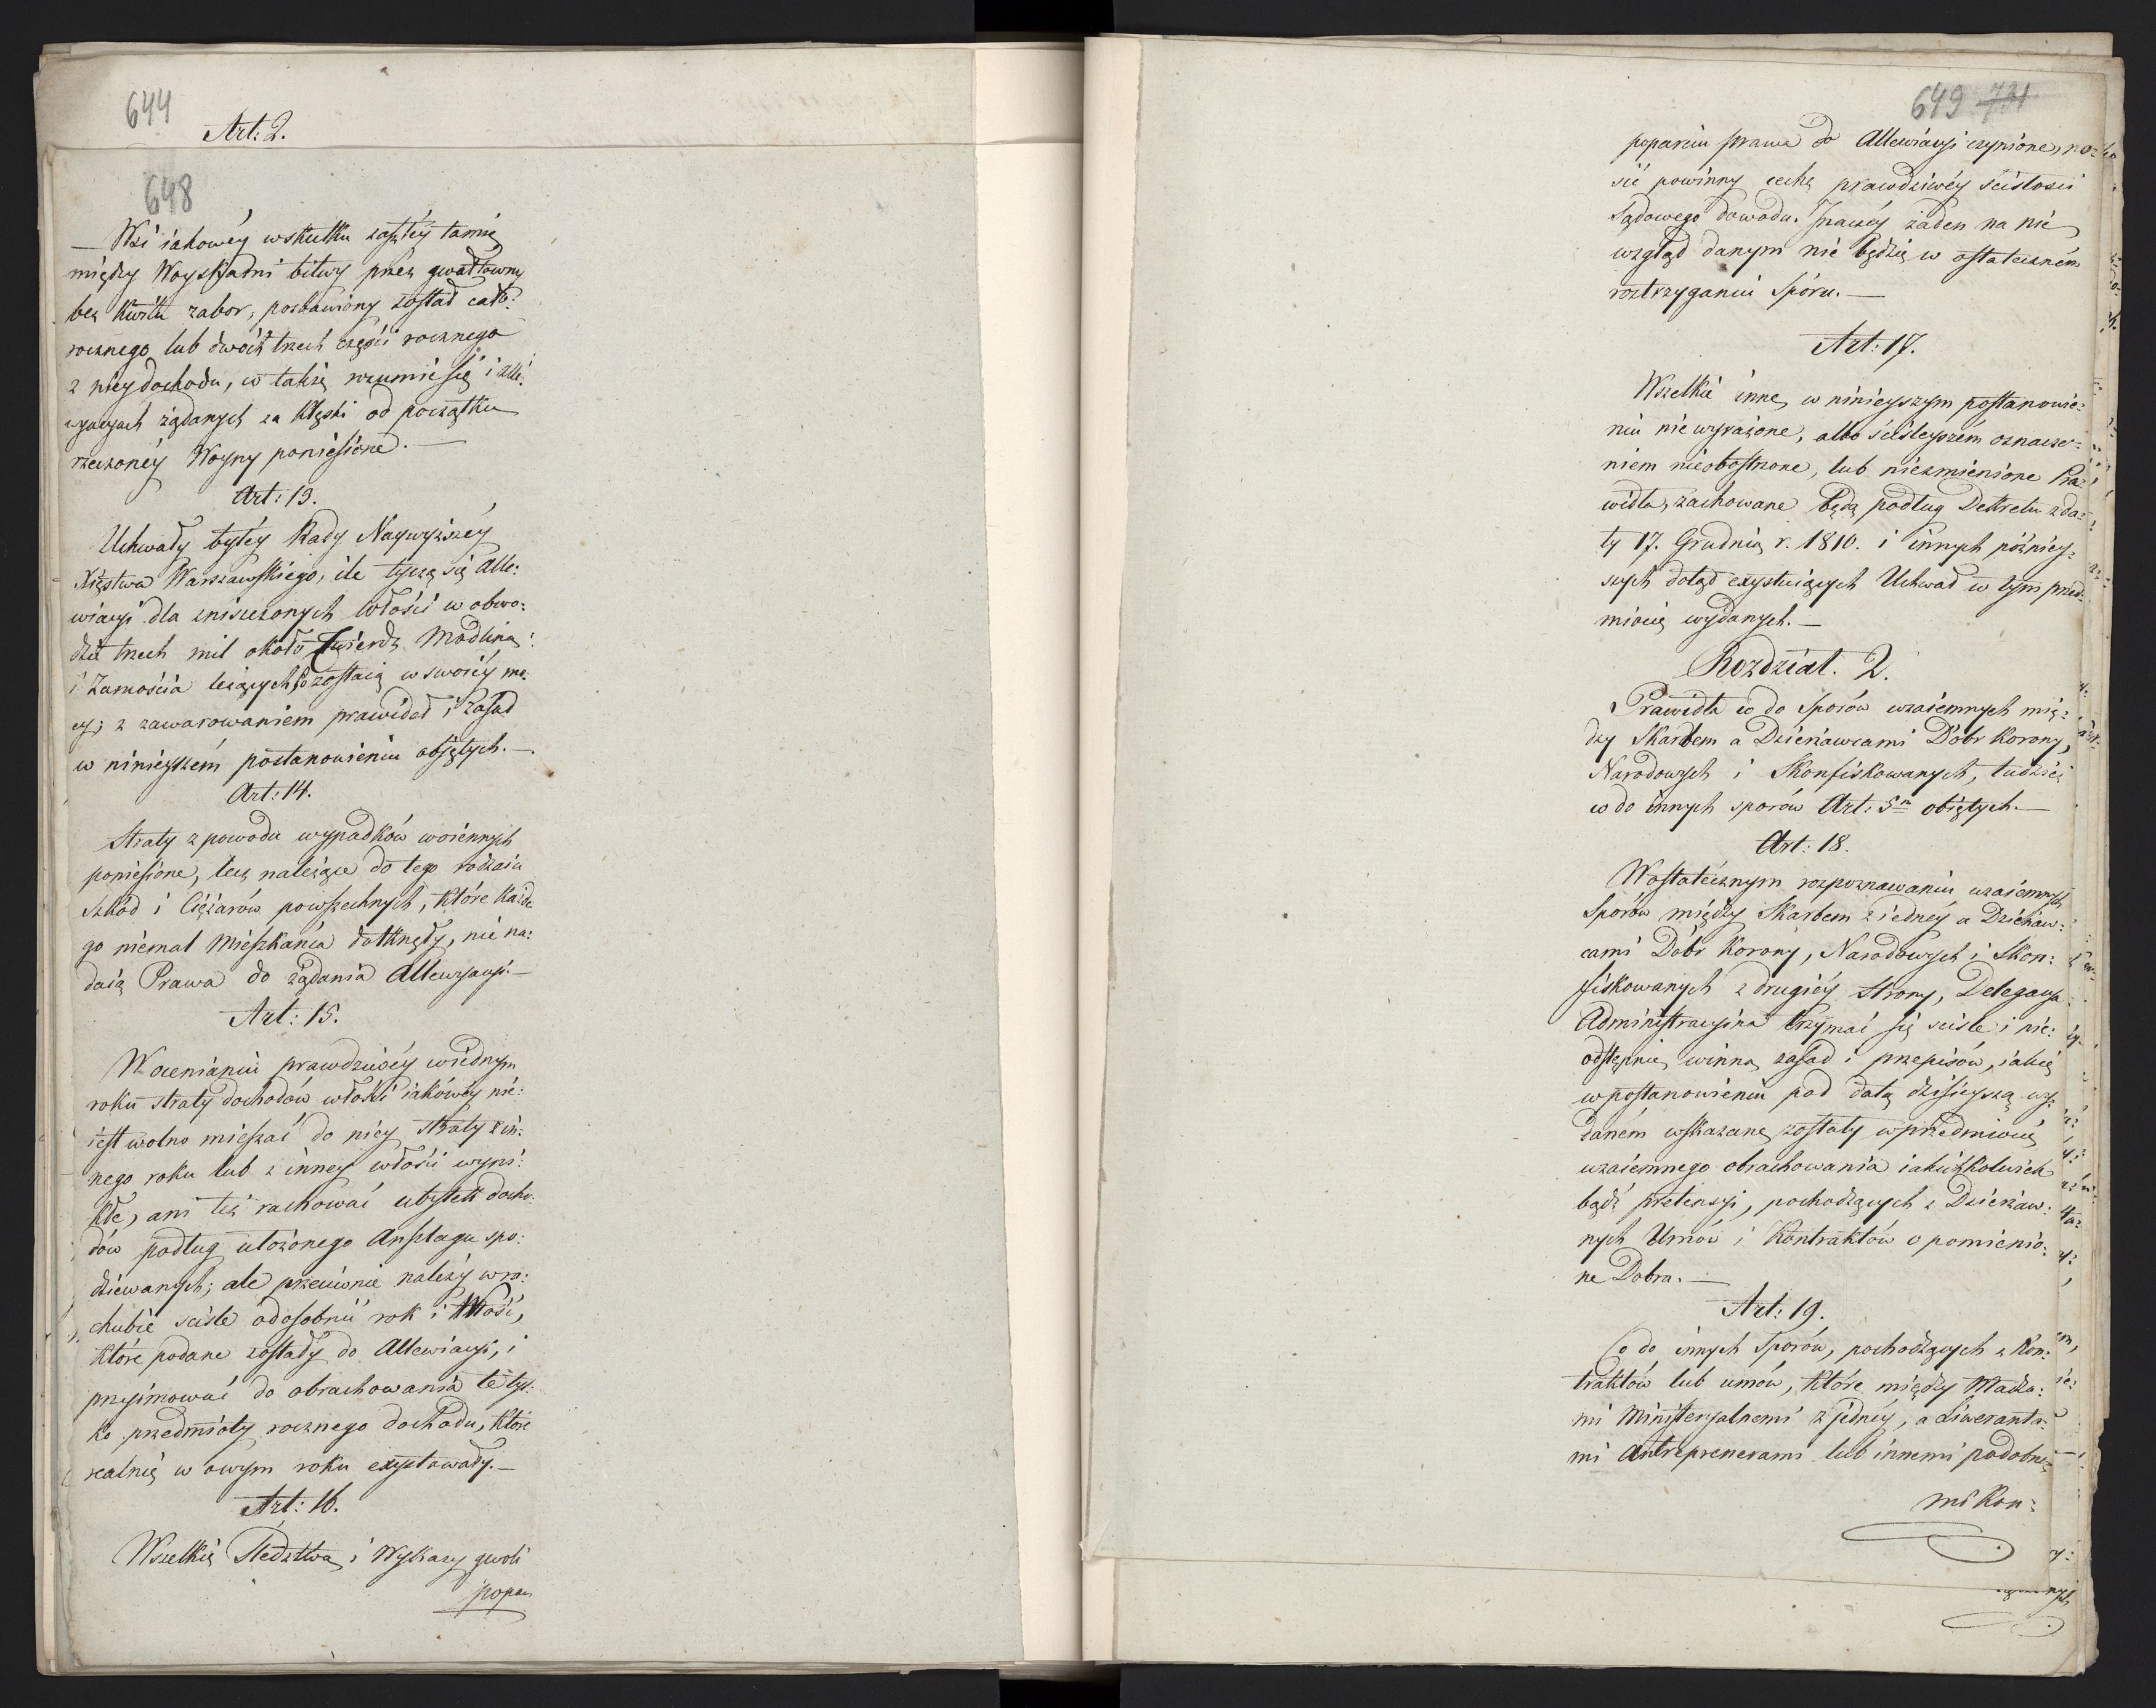 644
Art: 2.
648
— Wsi iakowéy wskutku zaszłéy tamże
między Woyskami bitwy przez gwałtowny
bez kwitu zabor, pozbawiony został cało:
rocznego lub dwóch trzech części rocznego
z niey dochodu, w także rozumie się i alle:
wyacyach żądanych za klęski od początku
rzeczonéy Woyny poniesione. —
Art: 13.
Uchwały byłéy Rady Naywyższéy
Xięstwa Warszawskiego, ile tyczą się Alle:
wiacyi dla zniszczonych włości w obwo:
dzie trzech mil około Twierdz Modlina
i Zamościa leżących, zostaią w swoiéy mo:
cy; z zawarowaniem prawideł i Zasad
w ninieyszém postanowieniu objętych. —
Art: 14.
Straty z powodu wypadków woiennych
poniesione, lecz należące do tego rodzaiu
Szkód i Ciężarów powszechnych, które każde
go niemal Mieszkańca dotknęły, nie na:
daią Prawa do żądania Allewyacyi. —
Art: 15.
W ocenianiu prawdziwéy wiednym
roku straty dochodów włości iakówéy nie:
iest wolno mieszać do niey straty z in:
nego roku lub z inney włości wyni:
kłe, ani też rachować ubytek docho:
dów podług ułożonego Anszlagu spo:
dziewanych; ale przeciwnie należy w ra:
chubie ściśle odosobnić rok i Włość,
które podane zostały do Allewiacyi, i
przyimować do obrachowania te tyl:
ko przedmioty rocznego dochodu, które
realnie w owym roku exystowały. —
Art: 16.
Wszelkie Śledztwa i Wykazy gwoli
popar
649 731
poparciu prawa do Allewiacyi czynione, no:
sić powinny cechę prawdziwéy ścisłości
Sądowego dowodu. Inaczéy żaden na nie
wzgląd danym nie będzie w ostateczném
rostrzyganiu Sporu. —
Art: 17.
Wszelkie inne, w ninieyszym postanowie:
niu niewyrażone, albo ściśleyszém oznacze:
niem nieobostrzone, lub niezmienione Pra:
widła, zachowane będą podług Dekretu z da:
ty 17. Grudnia r. 1810. i innych późniey:
szych dotąd exystuiących Uchwał w tym przed:
miocie wydanych. —
Rozdział. 2.
Prawidła co do Sporów wzaiemnych mię:
dzy Skarbem a Dzierżawcami Dóbr Korony,
Narodowych i Skonfiskowanych, tudzież
co do innych sporów Art: 5m obiętych. —
Art: 18.
W ostatecznym rozpoznawaniu wzaiemnych
Sporów między Skarbem z iednéy a Dzierżaw:
cami Dóbr Korony, Narodowych i Skon:
fiskowanych z drugiéy Strony, Delegacya
Administracyina trzymać się ściśle i nie:
odstępnie winna zasad i przepisów, iakie
w postanowieniu pod datą dzisieyszą wy:
daném wskazane zostały w przedmiocie
wzaiemnego obrachowania iakichkolwiek
bądź pretensyi, pochodzących z Dzierżaw:
nych Umów i Kontraktów o pomienio:
ne Dobra. —
Art: 19.
Co do innych Sporów, pochodzących z Kon:
traktów lub umów, które między Władza:
mi Ministeryalnemi z jednéy, a Liweranta:
mi Antreprenerami lub innemi podobne:
mi Kon: